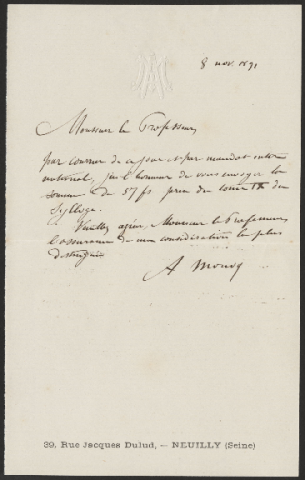 8 nov. 1891
Monsieur le Professeur,
par courrier de ce jour et par mandat inter
national, j'ai l'honneur de vous envoyer la
somme de 57 fs prix du tome IX du
Sylloge.
Veuillez agréer, Monsieur le Professeur,
l'assurance de ma considération la plus
distinguée
A
39, Rue Jacques Dulud, — NEUILLY (Seine)